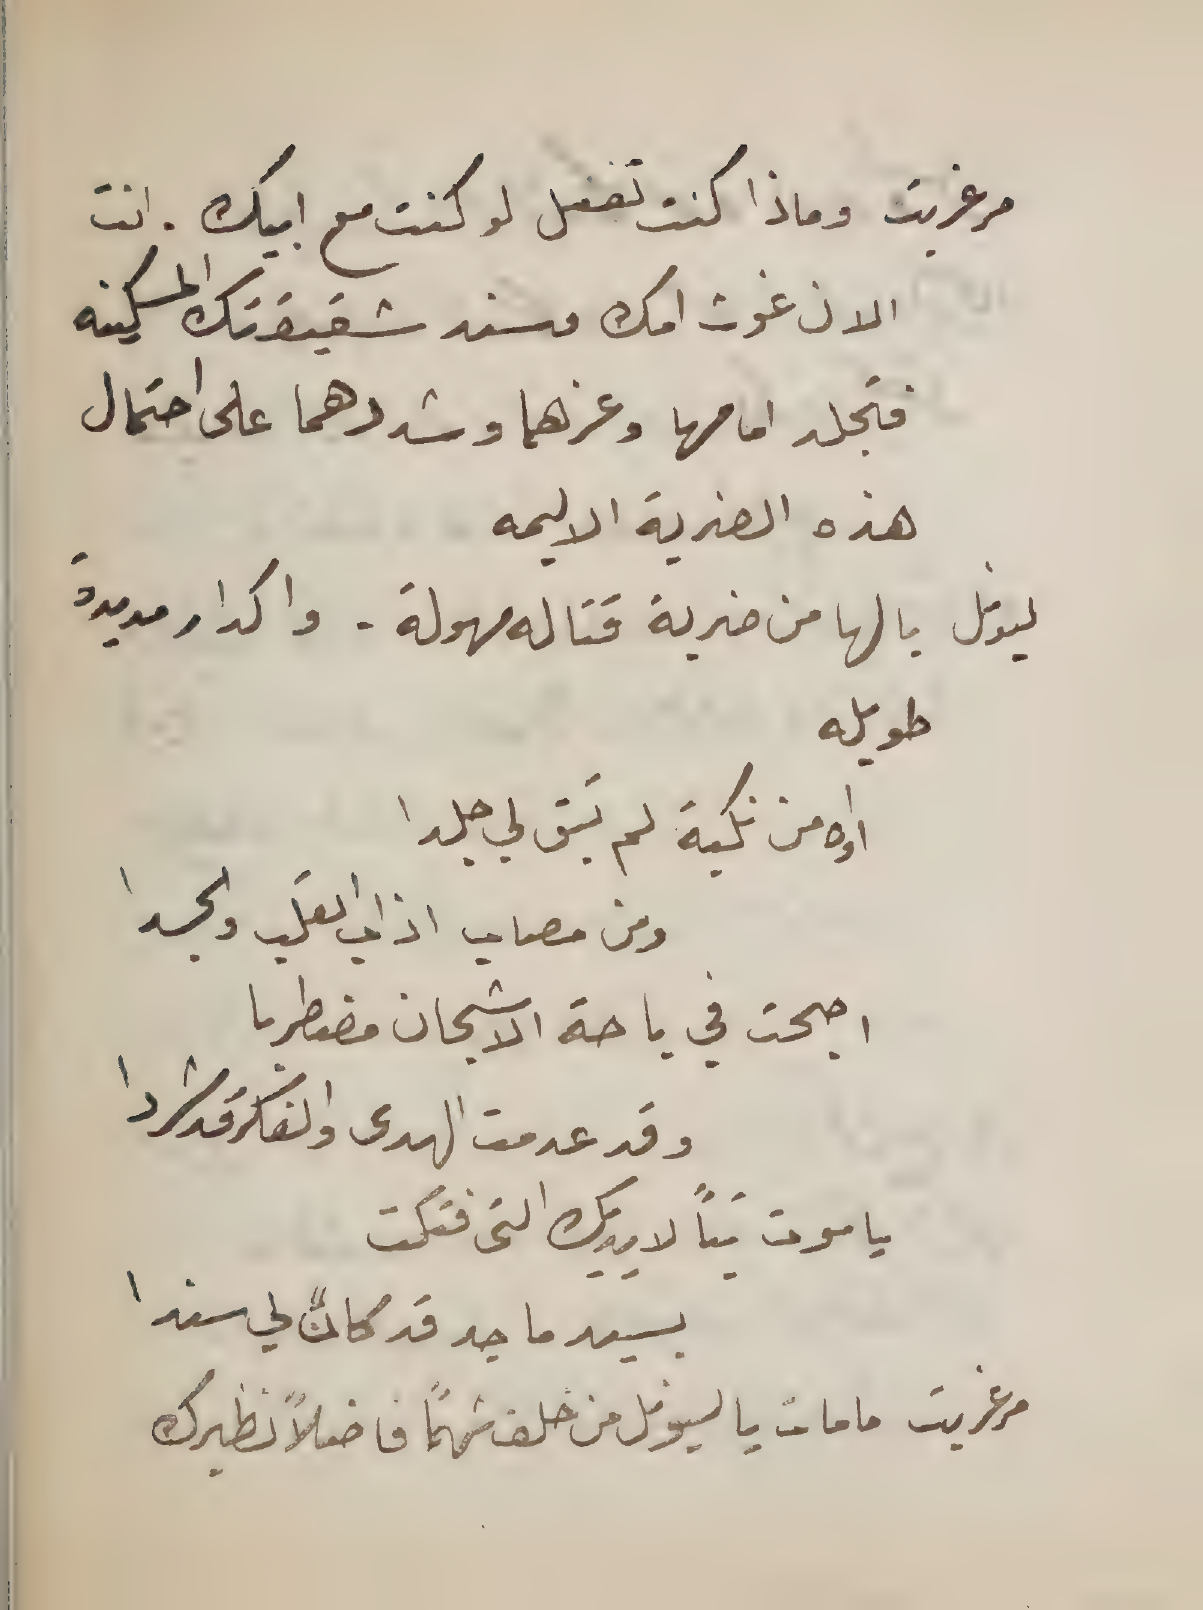 مرغريت وماذا كنت تفعل لو كنت مع ابيك . انت
الان غوث امك وسند شقيقتك المسكينه
فتجلد امامها وعزهما وشددهما على احتمال
هذه الضربة الاليمه
ليونل يا لها من ضربة قتاله مهولة - واكدار مديدة
طويله
اواه من نكبة لم تبق لي جلدا
ومن مصاب اذاب القلب والجسدا
اصبحت في باحة الاشجان مضطربا
وقد عدمت الهدى والفكر قد شردا
يا موت تباً لايديك التى فتكت
بسيد ماجد قد كان لي سندا
مرغريت مامات يا ليونل من خلف شهماً فاضلاً نظيرك